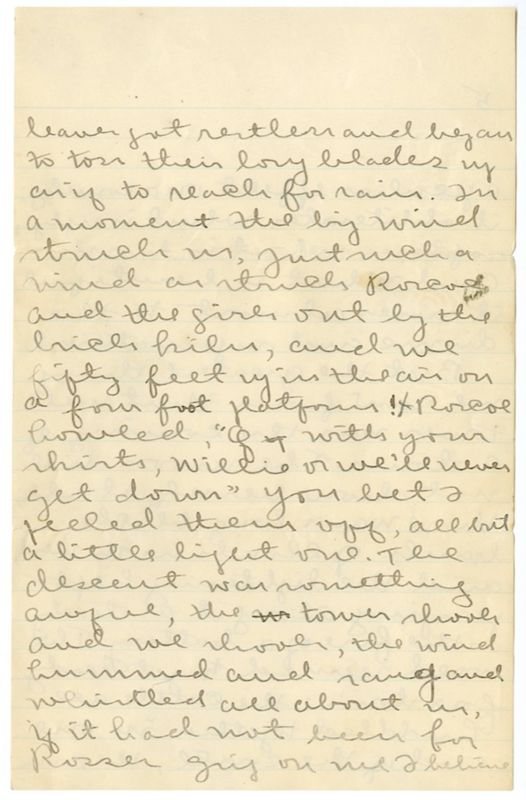 leaves got restless and began
to toss their long blades up
as if to reach for rain. In
a moment the big wind
struck us, just such a
wind as struck Roscoe
and the girls out by the
brick kiln, and we
fifty feet up in the air on
a four foot platform! Roscoe
howled, "Off with your
skirts, Willie or we'll never
get down" You bet I
peeled them off, all but
a little light one. The
descent was something
awful, the tower shook
and we shook, the wind
hummed and sang and
whistled all about us,
if it had not been for
grip on me I believe